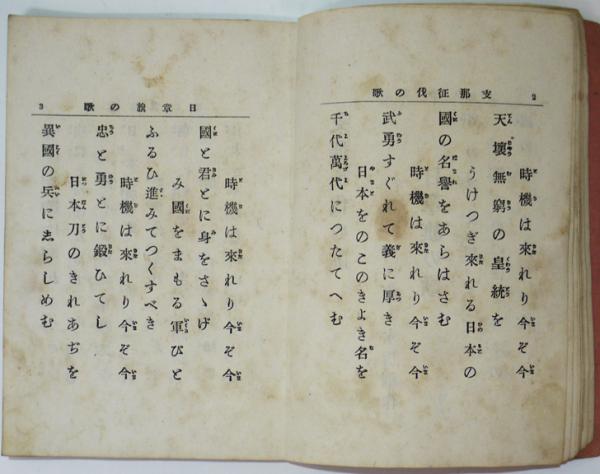 支那征伐の歌
2
時機は來れり今ぞ今
天壤無窮の皇統を
うけつぎ來れる日本の
國の名譽をあらはさむ
時機は來れり今ぞ今
武勇すぐれて義に厚き
日本をのこのきよき名を
千代萬代につたてへむ
日章旗の歌
3
時機は來れり今ぞ今
國と君とに身をさゝげ
み國をまもる軍びと
ふるひ進みてつくすべき
時機は來れり今ぞ今
忠と勇とに鍛ひてし
日本刀のきれあぢを
異國の兵に志らしめむ